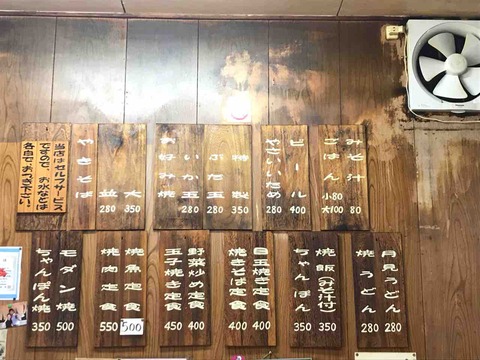 みそ汁 80
ごはん 小80 大100
ビール 400
やさいいため 280
特製 350
ぶた玉 280
いか玉 280
お好み焼
大 350
並 280
やきそば
当店はセルフサービス
ですので、お水などは
各自で、おつぎ下さい。
月見うどん 280
焼うどん 280
焼飯(みそ汁付) 350
ちゃんぽん 350
目玉焼き定食 400
焼きそば定食 400
野菜炒め定食 400
玉子焼き定食 450
焼魚定食 500
焼肉定食 550
モダン焼 500
ちゃんぽん焼 350